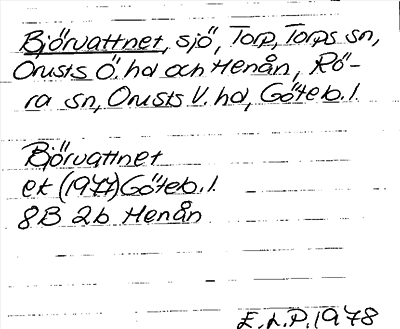 Björvattnet, sjö, Torp, Torps sn,
Orusts Ö. hd och Henån, Rö-
ra sn, Orusts V. hd, Göteb. l.
Björvattnet
ek (1977) Göteb. l.
8B 2b Henån
E.L.P. 1978